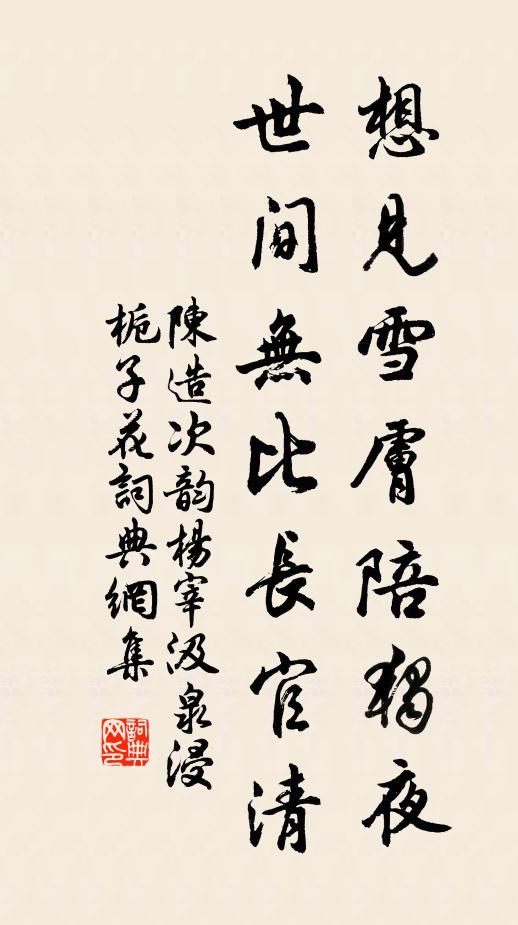 想見雪膚陪獨夜
世間無比長官清
陳造次韵楊宰汲泉浸
梔子花詞典網集
詞典网印